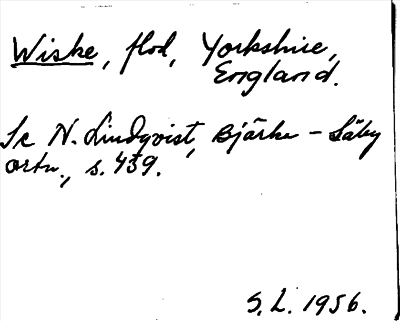 Wiske, flod, Yorkshire,
England.
Se N. Lindqvist, Bjärke - Säby
ortn., s. 439.
S.L. 1956.